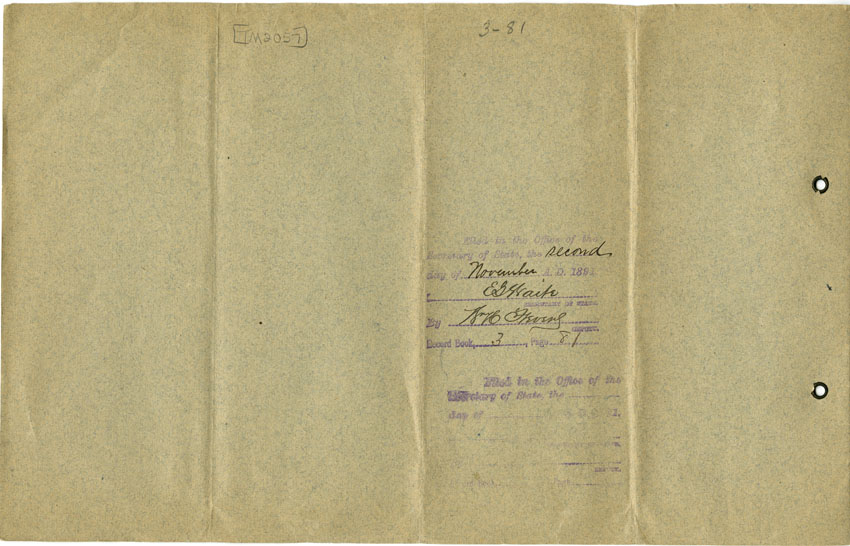 [TM2057]
3-81
Filed in the Office of the
Secretary of State, the second
day of November A.D. 1891
E G Waite
SECRETARY OF STATE.
By
DEPUTY.
Record Book, 3, Page 81
Filed in the Office of the
Secretary of State, the
day of
DEPUTY.